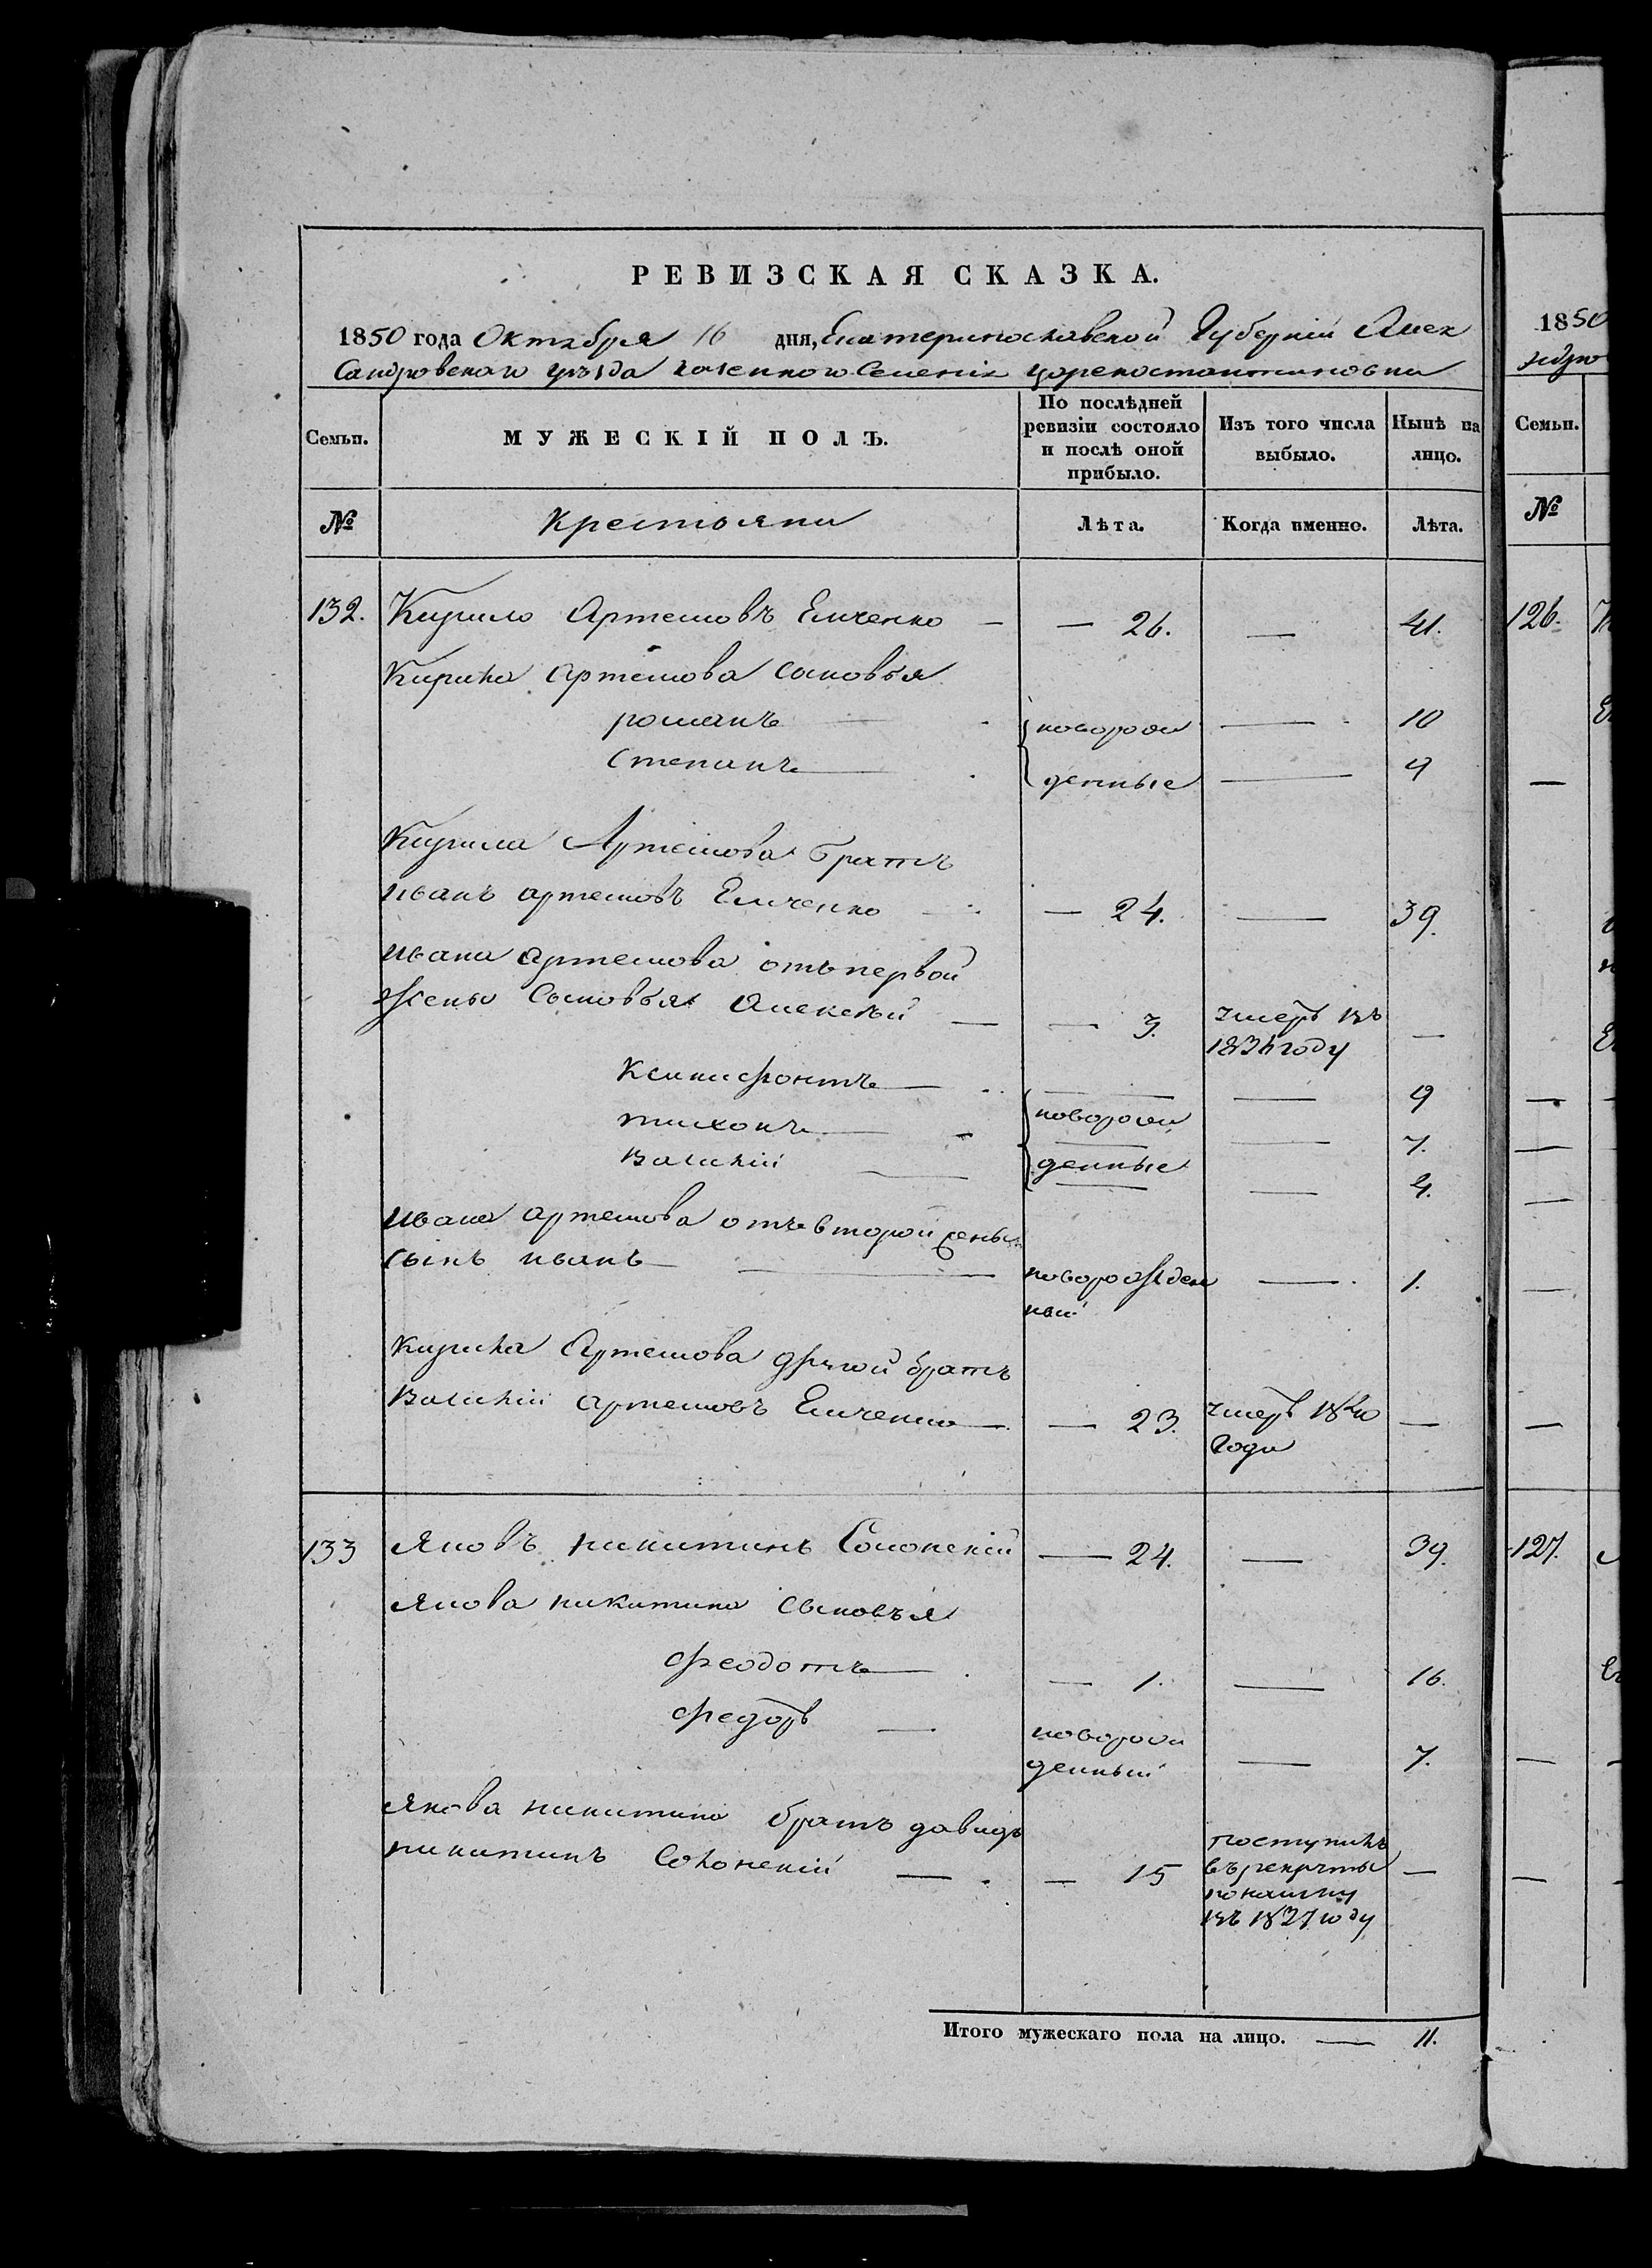 РЕВИЗСКАЯ СКАЗКА.
1850 года Октября 16 дня, Екатеринославской Губерніи Алек
сандровскаго уѣзда казеннаго Селенія цареконстантиновки
Семьи. МУЖЕСКІЙ ПОЛЪ. По послѣдней ревизіи состояло и послѣ оной прибыло. Изъ того числа выбыло. Нынѣ на лицо.
№ Крестьяни Лѣта. Когда именно. Лѣта.
132. Кирило Артемовъ Емченко — — 26. — 41.
Кирила артемова сыновья
романъ — — 10
степанъ — — 9
новорож
денные
Кирила Артемова братъ
иванъ артемовъ Емченко — — 24. — 39.
ивана артемова отъ первой
жены сыновья Алексѣй — — 3. умеръ въ —
году
Ксинифонтъ — — 9
тихонъ — — 7.
Василій — — 4.
новорож
денные
ивана артемова отъ второй жены
сынъ иванъ — новорожден — 1.
ный
Кирила Артемова другой братъ
Василій артемовъ Емченко — — 23. умеръ 1840 —
года
133 Яковъ никитинъ Солонскій — 24. — 39.
Якова никитина сыновья
феодотъ — — 1. — 16.
федоръ — новорож
денный — 7.
Якова никитина братъ давидъ
никитинъ Солонскій — — 15 поступилъ
въ рекруты —
по найму
въ 1837 году
Итого мужескаго пола на лицо. — 11.
1850
Семьи.
№
126.
127.